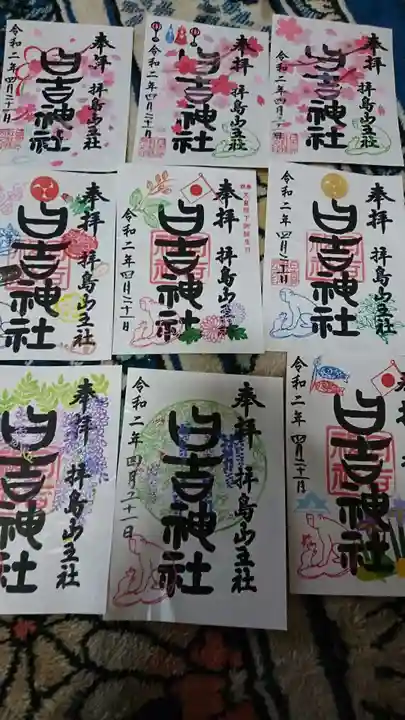 奉拝 拝島山王社
日吉神社
令和二年四月二十一日
奉拝 拝島山王社
日吉神社
令和二年四月二十一日
奉拝 拝島山王社
日吉神社
令和二年四月二十一日
奉拝 拝島山王社
日吉神社
令和二年四月二十一日
天皇陛下御誕生日
奉拝 拝島山王社
日吉神社
令和二年四月二十一日
奉拝 拝島山王社
日吉神社
令和二年四月二十一日
奉拝 拝島山王社
日吉神社
奉拝 拝島山王社
日吉神社
令和二年四月二十一日
日吉神社
令和二年四月二十一日